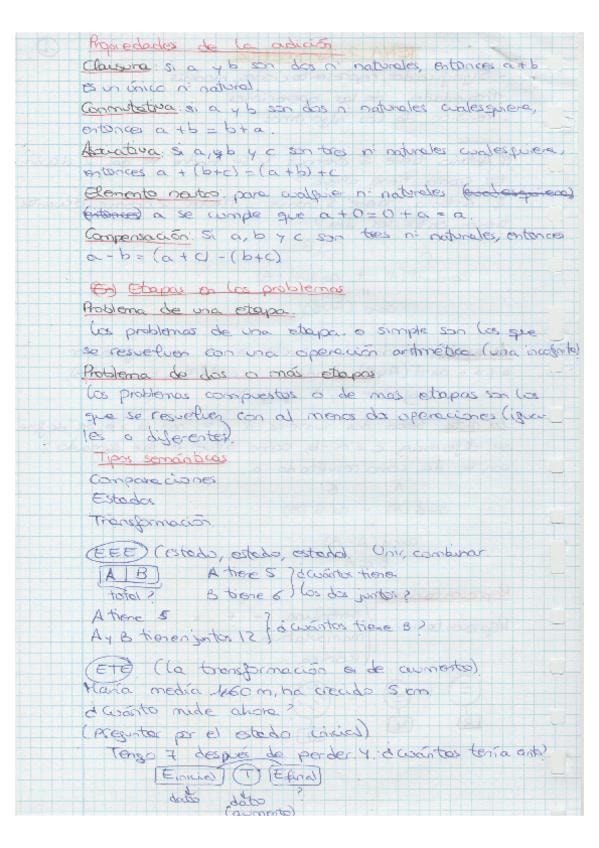 Propiedades de la adición
Clausura: si a y b son dos nº naturales, entonces a+b
es un único nº natural
Conmutativa: si a y b son dos nº naturales cualesquiera,
entonces a + b = b + a.
Asociativa: Si a, b y c son tres nº naturales cualesquiera,
entonces a + (b+c) = (a+b)+c
Elemento neutro: para cualquier nº naturales (cualesquiera)
(entonces) a se cumple que a+0=0+a=a.
Compensación: Si a, b y c son tres nº naturales, entonces
a - b = (a + c) - (b+c)
Etapas en los problemas
Problema de una etapa.
Los problemas de una etapa o simple son los que
se resuelven con una operación aritmética (una incógnita)
Problema de dos o más etapas
Los problemas compuestos o de más etapas son los
que se resuelvez con al menos dos operaciones (igua-
les o diferentes).
Tipos semánticos
Comparaciones
Estados
Transformación
EEE (estado, estado, estado). Unir, combinar
A B A tiene 5 } ¿cuántos tiene
total? B tiene 6 } los dos juntos?
A tiene 5
A y B tienen juntos 12 } ¿Cuántos tiene B?
ETE (La transformación es de aumento).
María medía 1'60 m, ha crecido 5 cm
¿Cuánto mide ahora?
(preguntar por el estado inicial)
Tengo 7 después de perder 4. ¿Cuántos tenía ant?
Einicial T Efinal
dato dato ?
(aumento)